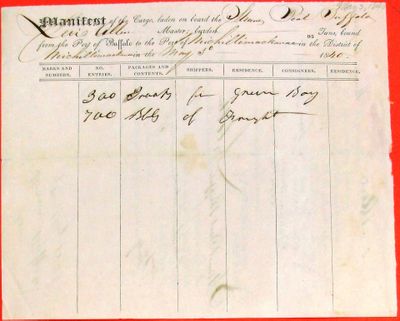 Manifest of the Cargo, laden on board the Illinois, Port Buffalo
Levis Allen Master, burden 95 Tuns, bound
from the Port of Buffalo to the Port of Michilimackinac in the District of
Michilimackinac in the May 3d 1840.
MARKS AND NUMBERS. NO. ENTRIES. PACKAGES AND CONTENTS. SHIPPERS. RESIDENCE. CONSIGNEES. RESIDENCE.
300 for Green Bay
700 Bbls of Freight